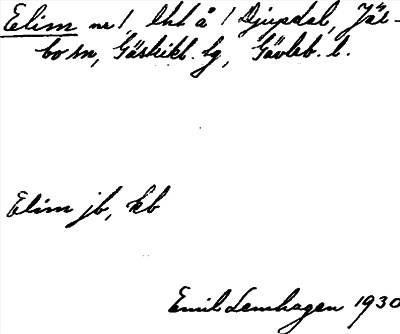 Elim nr 1, lht å 1 Djupdal, Jär-
bo sn, Gästrikl. lg, Gävleb. l.
Elim jb, kb
Emil Lemhagen 1930